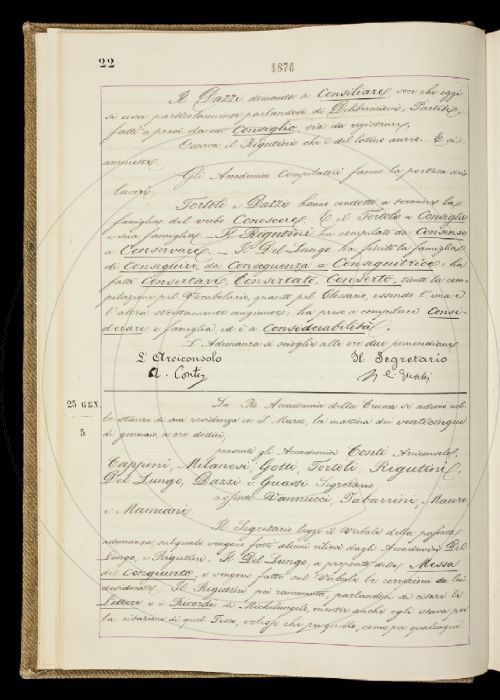 22
1876
Il Dazzi domanda se Consiliare, voce che oggi
si usa particolarmente parlandosi di Deliberazioni, Partiti,
fatti o presi da un Consiglio, sia da registrare.
Osserva il Rigutini che è del latino aureo. E si
ammette.
Gli Accademici Compilatori fanno la portata dei
lavori.
Tortoli e Dazzi hanno condotto a termine la
famiglia del verbo Conoscere. E il Tortoli a Consiglio
e sua famiglia. — Il Rigutini ha compilato da Consenso
a Conservare. — Il Del Lungo ha finito la famiglia
di Conseguire, da Conseguenza a Conseguitrice: ha
fatto Consertare, Consertato, Conserto, tanto la com-
pilazione pel Vocabolario, quanto pel Glossario, essendo l'una e
l'altra strettamente congiunte: ha preso a compilare Consi-
derare e famiglia, ed è a Considerabilità.
L'Adunanza si scioglie alle ore due pomeridiane
L'Arciconsolo Il Segretario
A. Conti
25 GEN.
5
La R.e Accademia della Crusca si aduna nel-
le stanze di sua residenza in S. Marco, la mattina dei venticinque
di gennaio, a ore dodici,
presenti gli Accademici Conti Arciconsolo,
Capponi, Milanesi, Gotti, Tortoli, Rigutini,
Del Lungo, Dazzi e Guasti Segretario
assenti Vannucci, Tabarrini, Mauri
e Mamiani
Il Segretario legge il Verbale della passata
adunanza, sul quale vengono fatti alcuni rilievi dagli Accademici Del
Lungo, e Rigutini. Il Del Lungo, a proposito della Messa
del Congiunto, e vengono fatte sul Verbale le correzioni da lui
desiderate. Il Rigutini poi rammenta, parlandosi di citare le
Lettere e i Ricordi di Michelangelo, mentre anche egli stava per
la citazione di quel Testo, volesse che per quello, come per qualunque